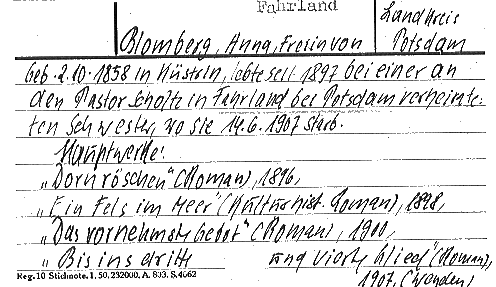 Fahrland
Landkreis
Potsdam
Blomberg, Anna, Freiin von
geb. 2.10.1858 in Küstrin, lebte seit 1897 bei einer an
den Pastor Scholte in Fahrland bei Potsdam verheirate-
ten Schwester, wo sie 14.6.1907 starb.
Hauptwerke:
„Dornröschen" (Roman), 1896,
„Ein Fels im Meer" (Kulturhist. Roman), 1898,
„Das vornehmste Gebot" (Roman), 1900,
„Bis ins dritte und vierte Glied" (Roman),
1907, (Wenden,
Reg. 10 Stichnote. 1. 50. 232000. A. 803. S. 4062